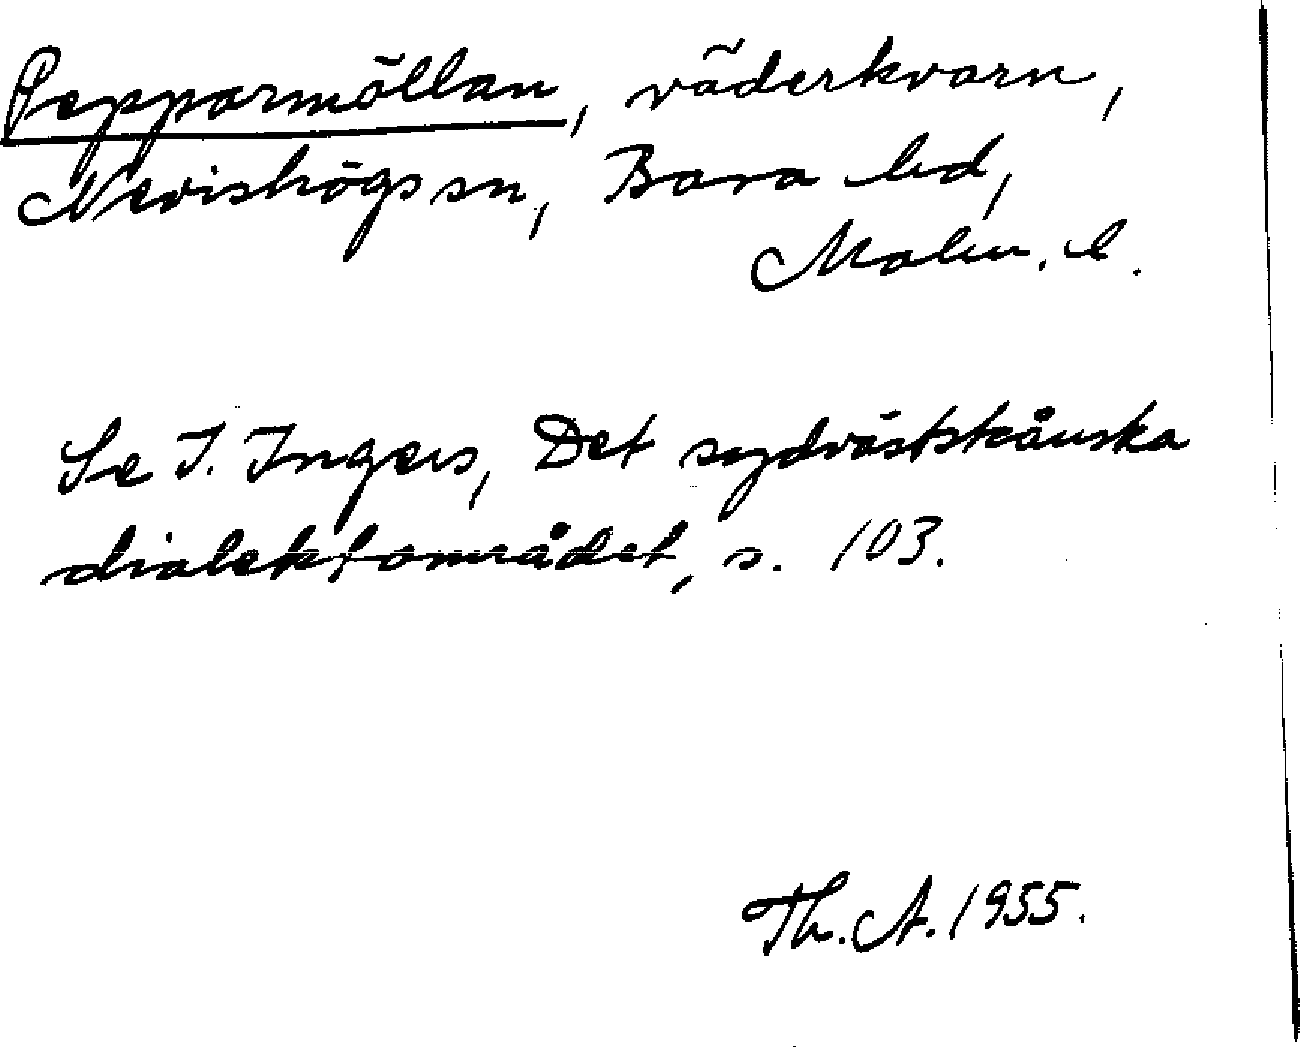 Pepparmöllan, väderkvarn,
Nevishögs sn, Bara hd,
Malm. l.
Se I. Ingers, Det sydvästskånska
dialektområdet, s. 103.
Th. A. 1955.